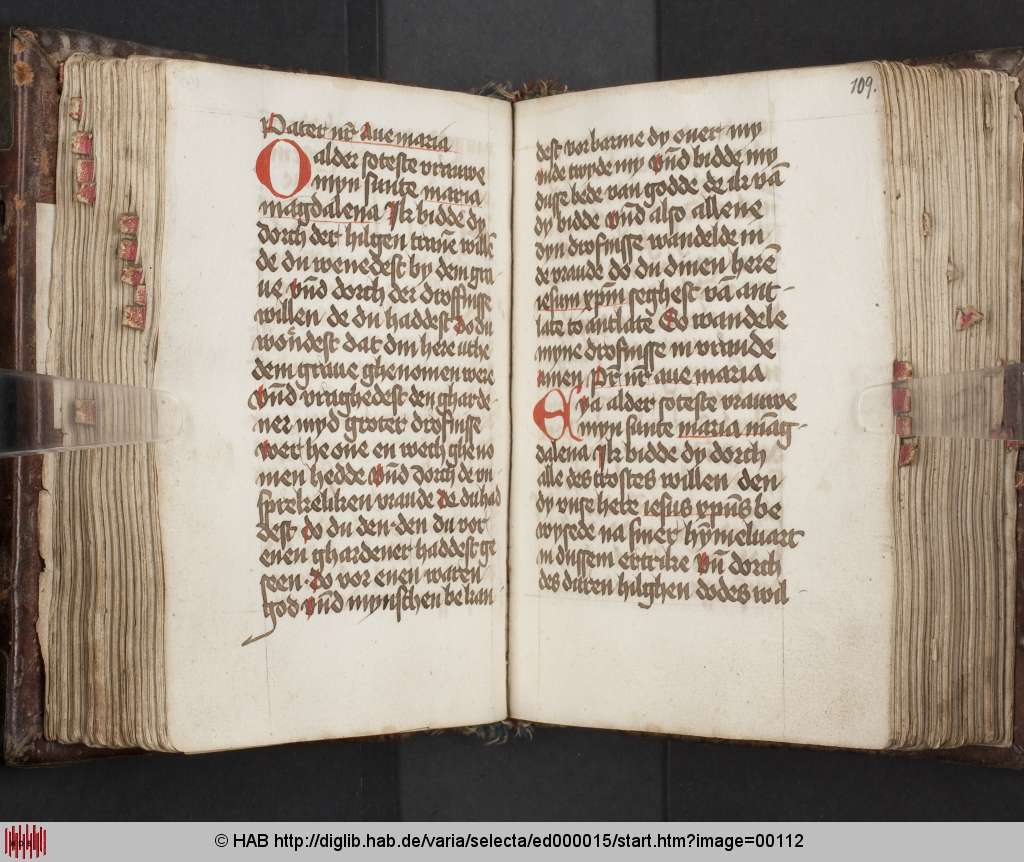 Pater nr̄ Aue maria
O alder soteste vrauwe
myn sunte maria
magdalena Jk bidde dy
dorch der hilgen trane willē
de du wenedest by dem gra
ue vn̄d dorch der droffnisse
willen de du haddest do du
wondest dat din here uthe
dem graue ghenomen were
vn̄d vraghedest den gharde-
ner myd groter drofnisse
wer he one en wech gheno
men hedde vn̄d dorch de vn
sprekeliken vraude de du had
dest do du den den du vor
enen ghardener haddest ge
seen do vor enen waren
god vn̄d mynschen bekan
109.
dest vorbarme dy ouer my
vnde twyde my vn̄d bidde my
dusse bede van godde de ik vā
dy bidde vn̄d also allene
dyn drofnisse wandelde in
de vraude do du dinen herē
iesum xp̄m seghest vā ant-
late to antlate So wandele
myne drofnisse in vraude
amen Pr̄ nr̄ aue maria
Eya alder soteste vrauwe
myn sunte maria mag-
dalena Jk bidde dy dorch
alle des trostes willen den
dy vnse here iesus xp̄us be
wysede na siner hȳmeluart
in dussem ertrike vn̄ dorch
des duren hilghen dodes wil
© HAB http://diglib.hab.de/varia/selecta/ed000015/start.htm?image=00112